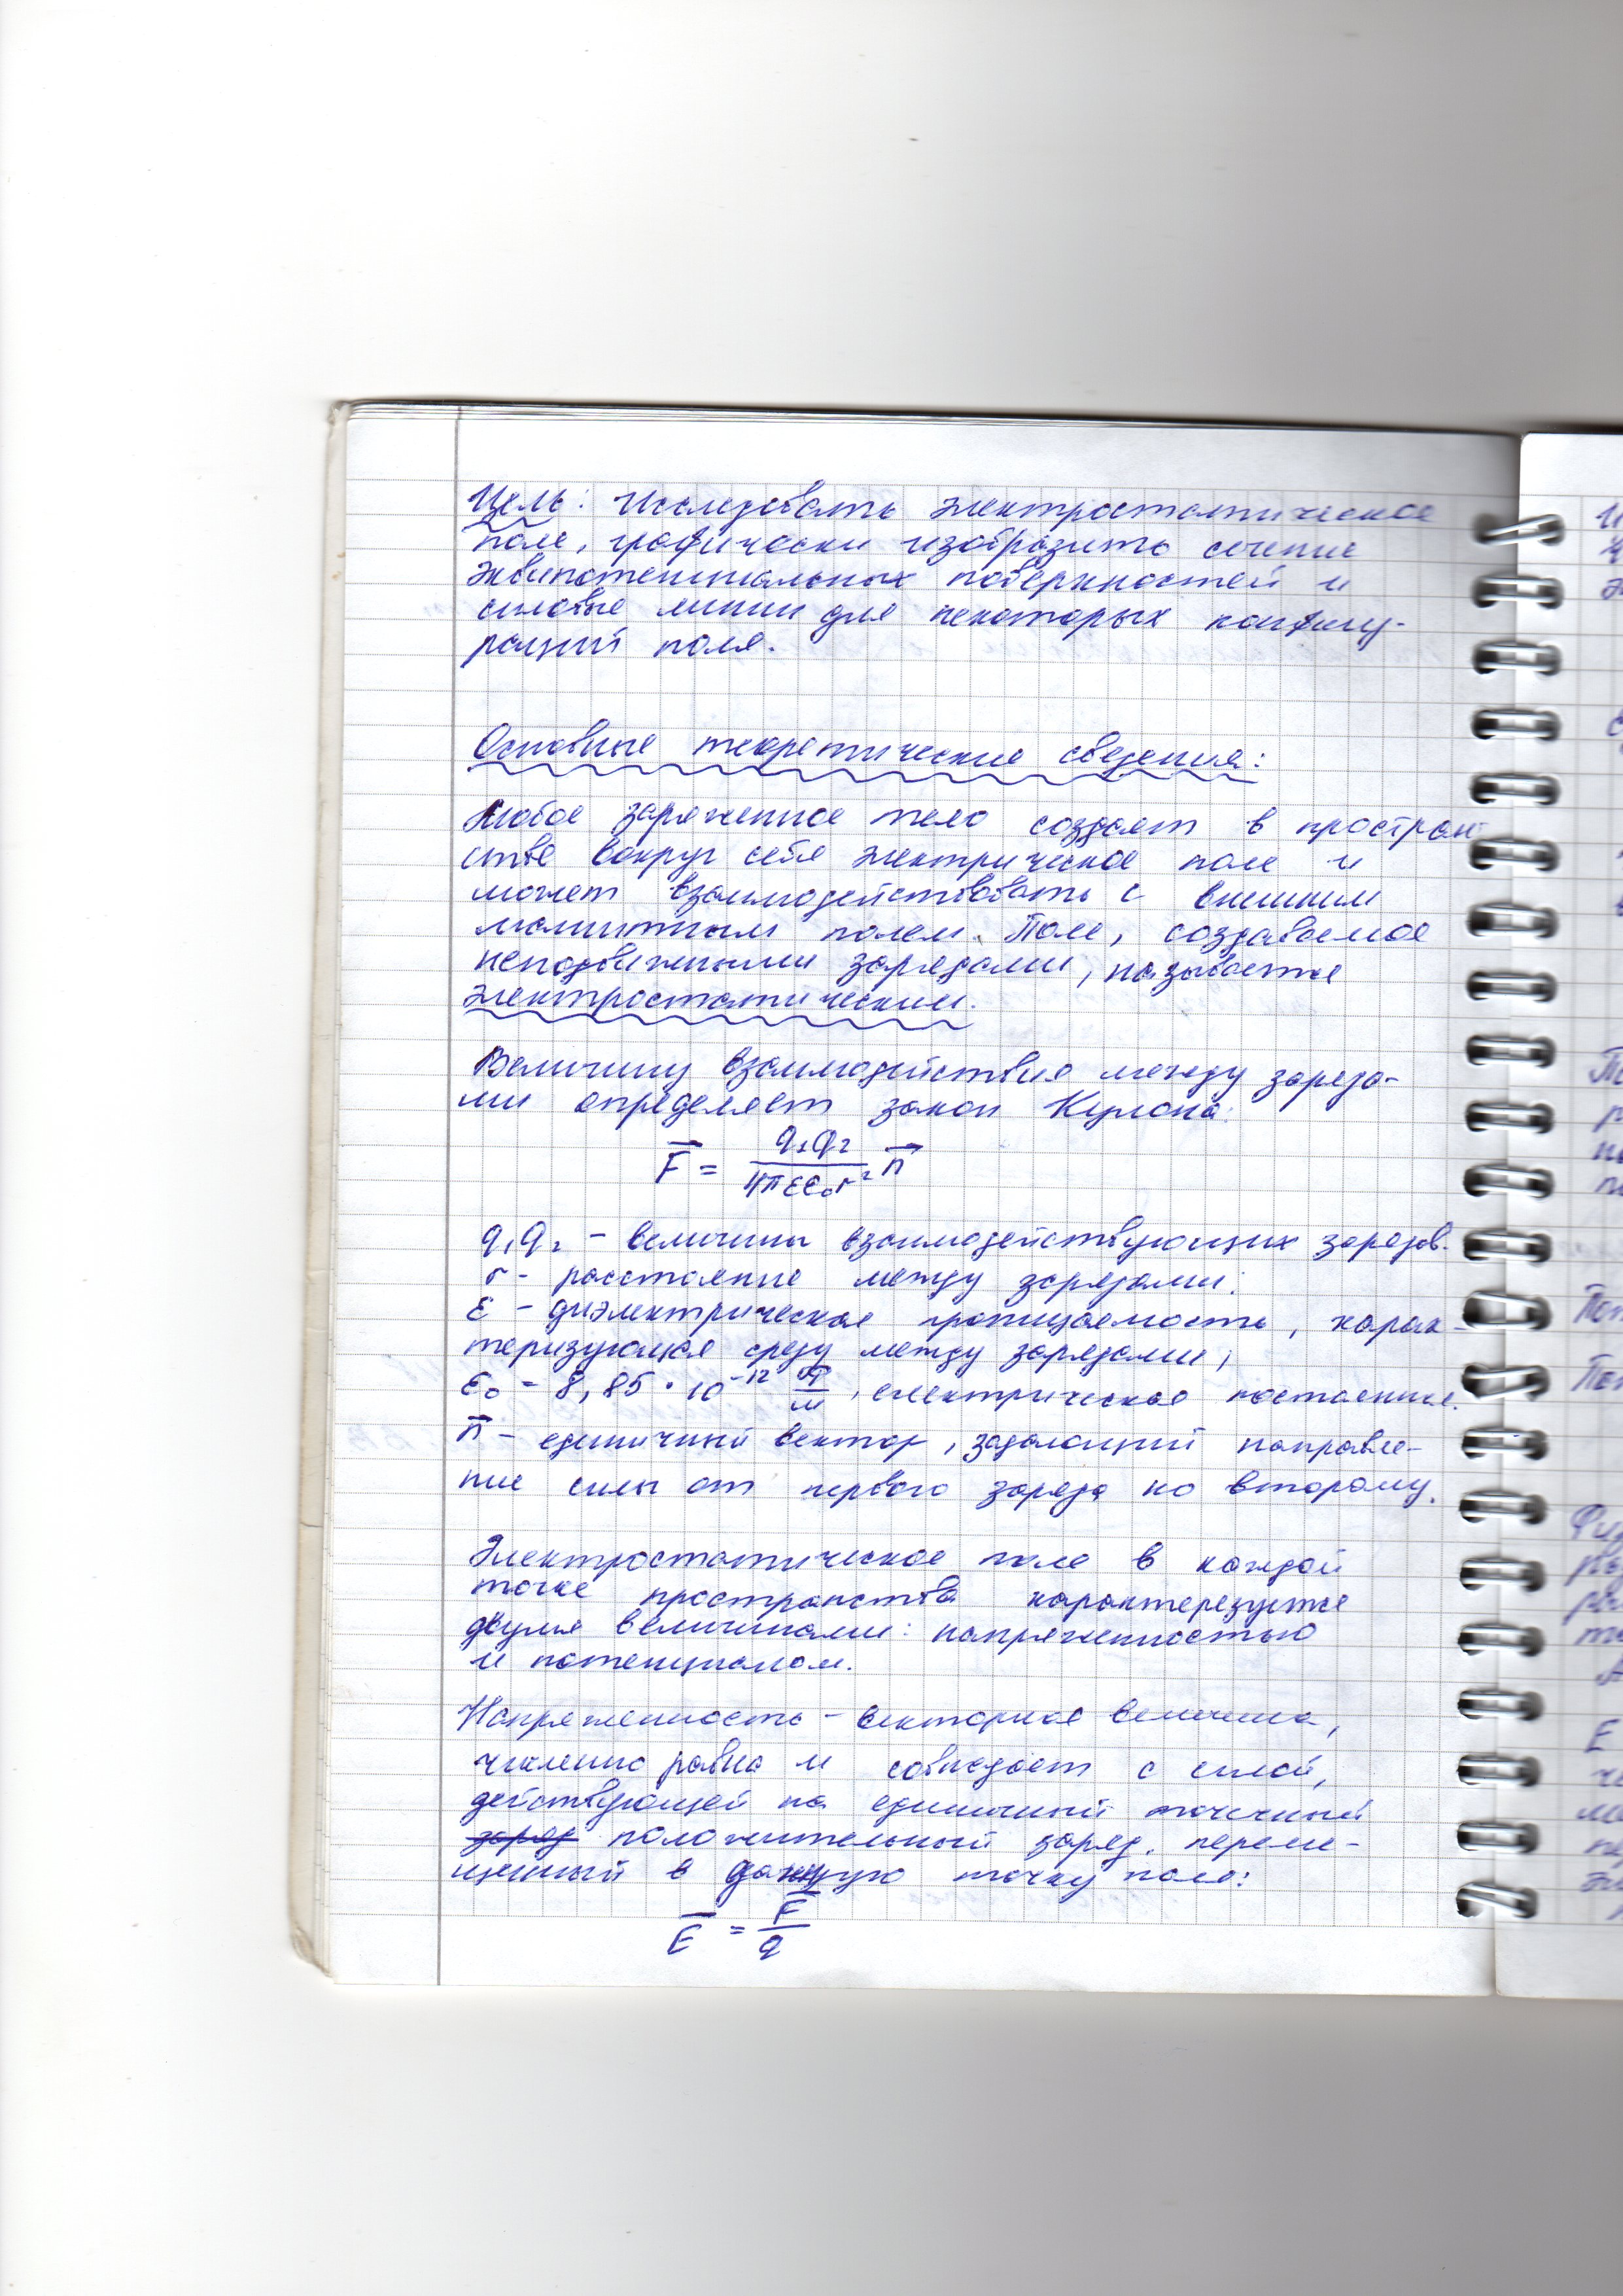 Цель: Исследовать электростатическое
поле, графически изобразить сечение
эквипотенциальных поверхностей и
силовые линии для некоторых конфигу-
раций поля.
Основные теоретические сведения:
Любое заряженное тело создает в простран
стве вокруг себя электрическое поле и
может взаимодействовать с внешним
магнитным полем. Поле, создаваемое
неподвижными зарядами, называется
электростатическим.
Величину взаимодействия между заряда-
ми определяет закон Кулона:
F⃗ = q₁q₂ / 4πεε₀r² n⃗
q₁q₂ - величины взаимодействующих зарядов.
r - расстояние между зарядами;
ε - диэлектрическая проницаемость, харак-
теризующая среду между зарядами;
ε₀ = 8,85 · 10⁻¹² Ф/м, електрическая постоянная.
n⃗ - единичный вектор, задающий направле-
ние силы от первого заряда ко второму.
Электростатическое поле в каждой
точке пространства характерезуется
двумя величинами: напряженностью
и потенциалом.
Напряженность - векторная величина,
численно равна и совпадает с силой,
действующей на единичный точечный
заряд положительный заряд, переме-
щенный в данную точку поля:
E⃗ = F⃗ / q